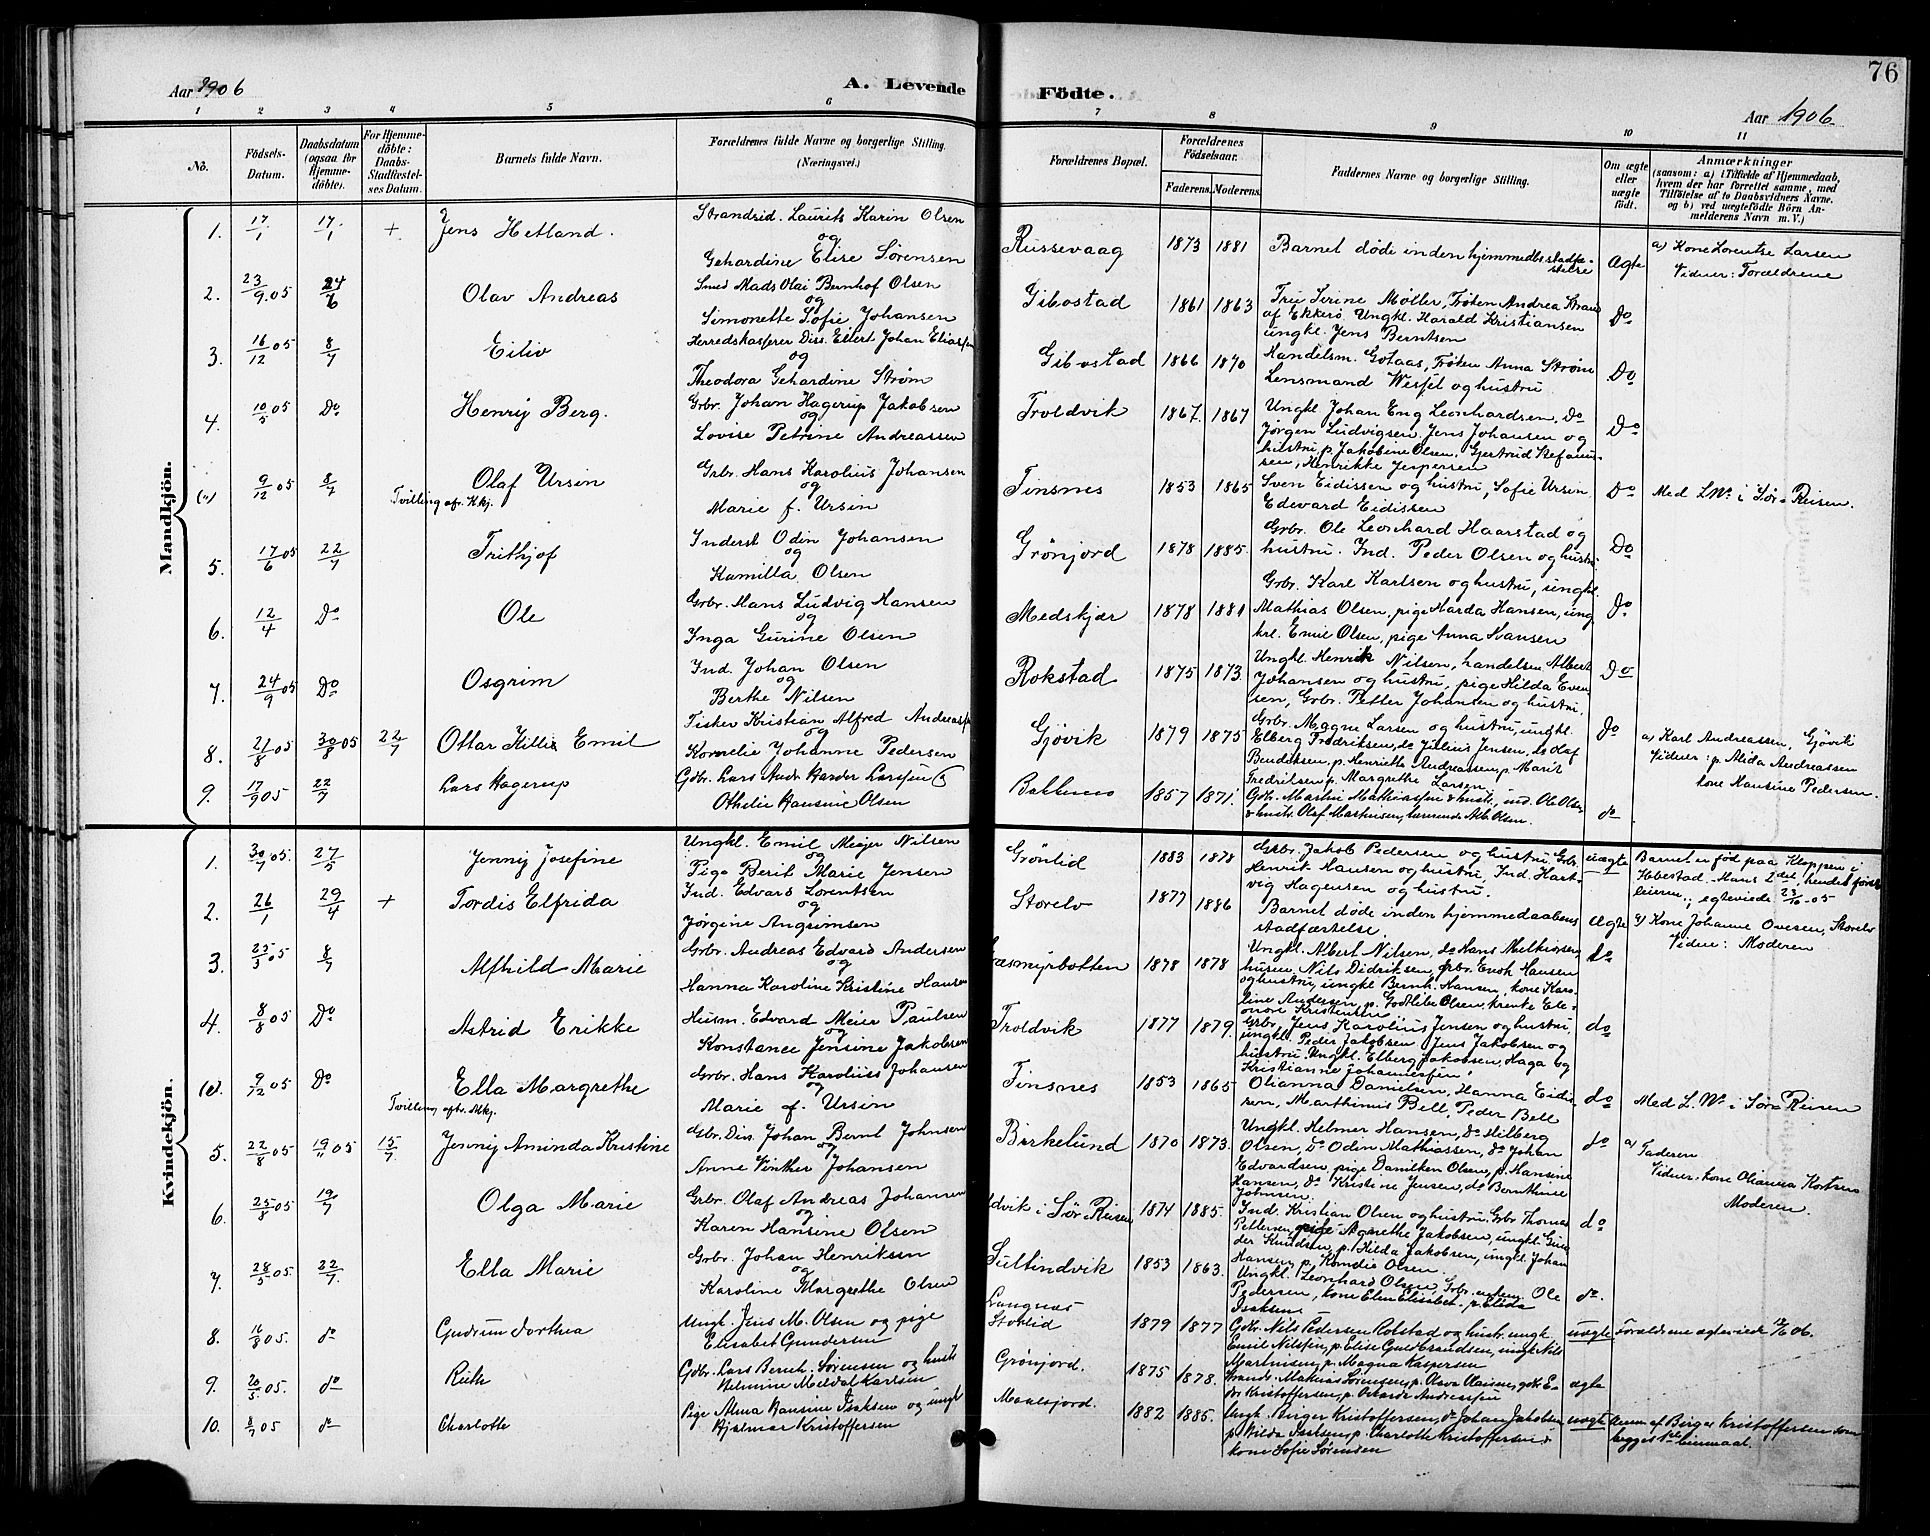 76
Aar 1906
A. Levende
Födte.
Aar 1906
1 2 3 4 5 6 7 8 9 10 11
No.
Födsels-Datum.
Daabsdatum (ogsaa for Hjemme-döbte).
For Hjemme-döbte: Daabs-Stadfæstel-ses Datum.
Barnets fulde Navn.
Forældrenes fulde Navne og borgerlige Stilling. (Næringsvei.)
Forældrenes Bopæl.
Forældrenes Födselsaar.
Faderens. Moderens.
Faddernes Navne og borgerlige Stilling.
Om ægte eller uægte födt.
Anmærkninger
(saasom: a) i Tilfælde af Hjemmedaab, hvem der har forrettet samme, med Tilföielse af to Daabsvidners Navne. og b) ved uægtefödte Börn Anmelderens Navn m. V.)
Mandkjön.
1. 17/1 17/1 + Jens Hetland.
Strandsid. Laurits Karin Olsen
og
Gehardine Elise Sørensen
Russevaag 1873 1881
Barnet døde inden hjemmedbs stadfæstelse
Ægte
a) Kone Lorentse Larsen
Vidner: Forældrene
2. 23/9 05 24/6 Olav Andreas
Smed Mads Olai Bernhof Olsen
og
Simonette Sofie Johansen
Gibostad 1861 1863
Fru Serine Møller, Frøken Andrea Strand
af Ekkerö Ungkl. Harald Kristiansen
ungkl. Jens Berntsen
Do
3. 16/12 05 8/7 Eiliv
Herredskasserer Diss. Eilert Johan Eliassen
og
Theodora Gehardine Strøm
Gibostad 1866 1870
Handelsm. Gotaas, Frøken Anna Strøm
Lensmand Wessel og hustru
Do
4. 10/5 05 Do Henrij Berg.
Grbr. Johan Hagerup Jakobsen
og
Lovise Petrine Andreassen
Troldvik 1867. 1867
Ungkl Johan Eng Leonhardsen, Do
Jørgen Ludvigsen, Jens Johansen og
hustru, p. Jakobine Olsen, Gjertrud Stefanus-
sen, Henrikke Jespersen
Do
9/12 05 8/7 Olaf Ursin
Tvilling afr. Kkj.
Grbr. Hans Karolius Johansen
og
Marie f. Ursin
Finsnes 1853 1865
Sven Eidissen og hustru, Sofie Ursin
Edevard Eidissen
Do
Med L.No i Sør-Reisen.
5. 17/6 05 22/7 Frithjof
Inderst Odin Johansen
og
Kamilla Olsen
Grönjord 1878 1885.
Grbr. Ole Leonhard Haarstad og
hustru. Ind. Peder Olsen og hustru
Do
6. 12/4 Do Ole
Grbr. Hans Ludvig Hansen
og
Inga Gurine Olsen
Medskjær 1878 1881
Grbr. Karl Karlsen og hustru, ungkl.
Mathias Olsen, pige Harda Hansen, ung
krl. Emil Olsen, pige Anna Ivansen
Do
7. 24/9 05 Do Osgrim
Ind. Johan Olsen
og
Berthe Nilsen
Rokstad 1875 1873
Ungkl. Henrik Nilsen, handelsm. Albert
Johansen og hustru, pige Hilda Even
sen, Grbr. Petter Johansen og hustru.
Do
8. 21/8 05 30/8 05 22/7 Ottar Killis Emil
Fisker Kristian Alfred Andreassen
og
Kornelie Johanne Pedersen
Gjövik 1879 1875
Grbr. Magne Larsen og hustru, ungkl.
Elberg Fredriksen, do Julius Jensen, do Olaf
Bendiksen, p. Henriette Andreassen, p. Marit
Fredriksen, p. Margrethe Larsen
do
a) Karl Andreassen, Gjövik
Vidner: p. Alida Andreassen
kone Hansine Pedersen.
9. 17/9 05 22/7 Lars Hagerup
Gdbr. Lars Andr. Xander Larssen
Othelie Hansine Olsen
1857 1871.
Gdb. Martin Mathiassen & hustr., ind. Ole Olsen
& hustr. Olaf Martinsen, lærerinde Alb. Olsen.
do
Kvindekjön.
1. 30/7 05. 27/5 Jennij Josefine
Ungkl. Emil Meijer Nilsen
og
Pige Berit Marie Jensen
Grönlid 1883 1878
Grbr. Jakob Pedersen og hustru Grbr.
Henrik Hansen og hustru, Ind. Hart-
vig Hagensen og hustru.
uægte
Barnet er fød paa Kloppen i
Ibestad. Hans 2det, hendes første
leierm.; egteviede 23/10-05
2. 26/1 29/4 + Tordis Elfrida
Ind. Edvard Lorentsen
og
Jørgine Angrimsen
Storelv 1877 1886
Barnet døde inden hjemmedaabens
stadfæstelse.
Ægte
a) Kone Johanne Ovesen, Storelv
Vidne: Moderen
3. 25/3 05 8/7 Alfhild Marie
Grbr. Andreas Edvard Andersen
og
Hanna Karoline Kristine Hansen
Græsmyrbotten 1878 1878
Ungkl. Albert Nilsen, do Hans Melkiorsen,
husm. Nils Didriksen, Grbr. Enok Hansen
og hustru, ungkl Bernh. Hansen, kone Karo-
line Andersen, p. Godtlibe Olsen, enke Ele-
onore Kristensen
do
4. 8/8 05 Do Astrid Erikke
Husm. Edvard Meier Paulsen
og
Konstance Jensine Jakobsen
Troldvik 1877 1879.
Grbr. Jens Karolius Jensen og hustru,
ungkl. Peder Jakobsen Jens Jakobsen og
hustru. Ungkl. Elberg Jakobsen, Haga og
Kristianne Johannessen
do
9/12 05 Do Ella Margrethe
Tvilling aftr. Mkj.
Grbr. Hans Karolius Johansen
og
Marie f. Ursin
Finsnes 1853 1865
Olianna Danielsen, Hanna Eidis-
sen, Marthinus Bell, Peder Bell
do
Med L.No i Sør-Reisen
5. 22/8 05 19/11 05 15/7 Jennij Aminda Kristine
Gbr. Diss. Johan Bernt Johnsen
og
Anne Vinther Johansen
Birkelund 1870 1873.
Ungkl. Helmer Hansen, Do Hilberg
Olsen, Do Odin Mathiassen, do Johan
Edvardsen, pige Danilken Olsen, p. Hansine
Hansen, do Kristine Jensen, do Bernthine
Johnsen.
do
a) Faderen
Vidner: kone Olianna Kortsen
Moderen.
6. 25/8 05 19/7 Olga Marie
Grbr. Olaf Andreas Johansen
og
Karen Hansine Olsen
dvik i Sør-Reisen 1874 1885.
Ind. Kristian Olsen og hustru, Grbr Thomas
Pettersen, pige Agnethe Jakobsen, ungkl. Gun-
der Knudsen, p. Hilda Jakobsen, ungkl. Johan
Hansen, p. Komdie Olsen.
do
7. 28/5 05. 22/7. Ella Marie
Grbr. Johan Henriksen
og
Karoline Margrethe Olsen
Sultindvik 1853 1863.
Ungkl. Leonhard Olsen, Grbr. Ole
Pedersen, kone Elen Elisabet, p. Elida
Isaksen
do.
8. 16/9 05. do Gudrun Dorthea
Ungk. Jens M. Olsen og pige
Elisabet Gundersen
Langnes
Stoklid 1879 1877
Gdbr. Nils Pedersen Rolstad og hustr. ungk.
Emil Nilssen, p. Elise Guldbrandsen, ungk. Nils
Martinsen, p. Magna Kaspersen
uægte
Forældrene ægteviede 12/6 06.
9. 20/5 05. do Ruth
Gdbr. Lars Bernh. Sørensen og hustr.
Helmine Meldal Karlsen
Grönjord. 1875 1878.
Strands. Mathias Sørensen, p. Olava Olaisen, gdb. E-
dv. Kristoffersen, p. Ovedia Andreassen
ægte
10. 8/7 05 do Charlotte
Pige Alma Hansine Isaksen og ungk.
Hjalmar Kristoffersen
Maalsfjord. 1882 1885.
Ungk. Birger Kristoffersen, do Johan Jakobsen
p. Hilda Isaksen, p. Charlotte Kristoffersen,
kone Sofie Sørensen
uægte
Anm. af Birger Kristoffersen som
begges 1ste leiermaal.